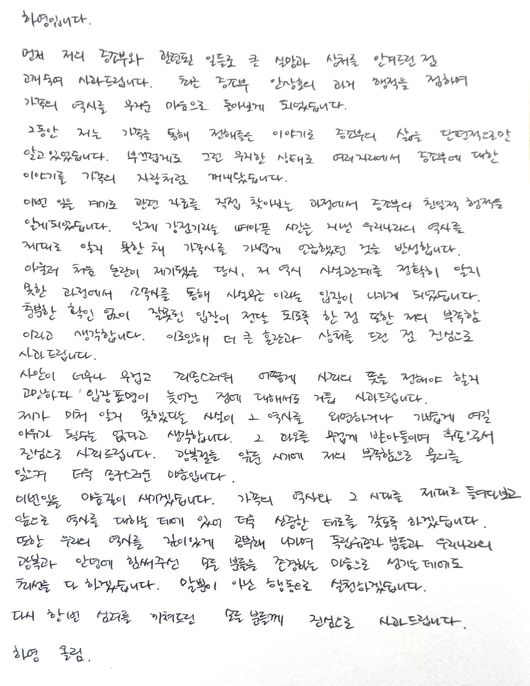 하영입니다.
먼저 저의 증조부와 관련된 일들로 큰 실망과 상처를 안겨드린 점
고개숙여 사과드립니다. 최근 증조부 의 과거 행적을 접하며
가족의 역사를 무거운 마음으로 돌아보게 되었습니다.
그동안 저는 가족을 통해 전해들은 이야기로 증조부의 삶을 단편적으로만
알고 있었습니다. 부끄럽게도 그런 무지한 상태로 여러자리에서 증조부에 대한
이야기를 가족의 자랑처럼 꺼내놨습니다.
이번 일을 계기로 관련 자료를 직접 찾아보는 과정에서 증조부의 친일적 행적을
알게되었습니다. 일제 강점기라는 뼈아픈 시간을 지닌 우리나라의 역사를
제대로 알지 못한 채 가족사를 가볍게 언급했던 것을 반성합니다.
아울러 처음 논란이 제기됐을 당시, 저 역시 사실관계를 정확히 알지
못한 과정에서 를 통해 사실무근 이라는 입장이 나가게 되었습니다.
충분한 확인 없이 잘못된 입장이 전달 되도록 한 점 또한 저의 부족함
이라고 생각합니다. 이로인해 더 큰 혼란과 상처를 드린 점 진심으로
사과드립니다.
사안이 너무나 무겁고 조심스러워 어떻게 사죄의 뜻을 전해야 할지
고민하다 입장표명이 늦어진 점에 대해서도 거듭 사과드립니다.
제가 미처 알지 못했다는 사실이 그 역사를 외면하거나 가볍게 여길
이유가 될수는 없다고 생각합니다. 그 과오를 무겁게 받아들이며 후손으로서
진심으로 사죄드립니다. 광복절을 앞둔 시기에 저의 부족함으로 물의를
일으켜 더욱 송구스러운 마음입니다.
이번일을 마음깊이 새기겠습니다. 가족의 역사와 그 시대를 제대로 들여다보고
앞으로 역사를 대하는 데에 있어 더욱 신중한 태도를 갖도록 하겠습니다.
또한 우리의 역사를 깊이있게 공부해 나가며 독립유공자 분들과 우리나라의
광복과 안녕에 힘써주신 모든 분들을 존경하는 마음으로 섬기는데에도
최선을 다 하겠습니다. 말뿐이 아닌 행동으로 실천하겠습니다.
다시 한번 심려를 끼쳐드린 모든 분들께 진심으로 사과드립니다.
하영 올림.